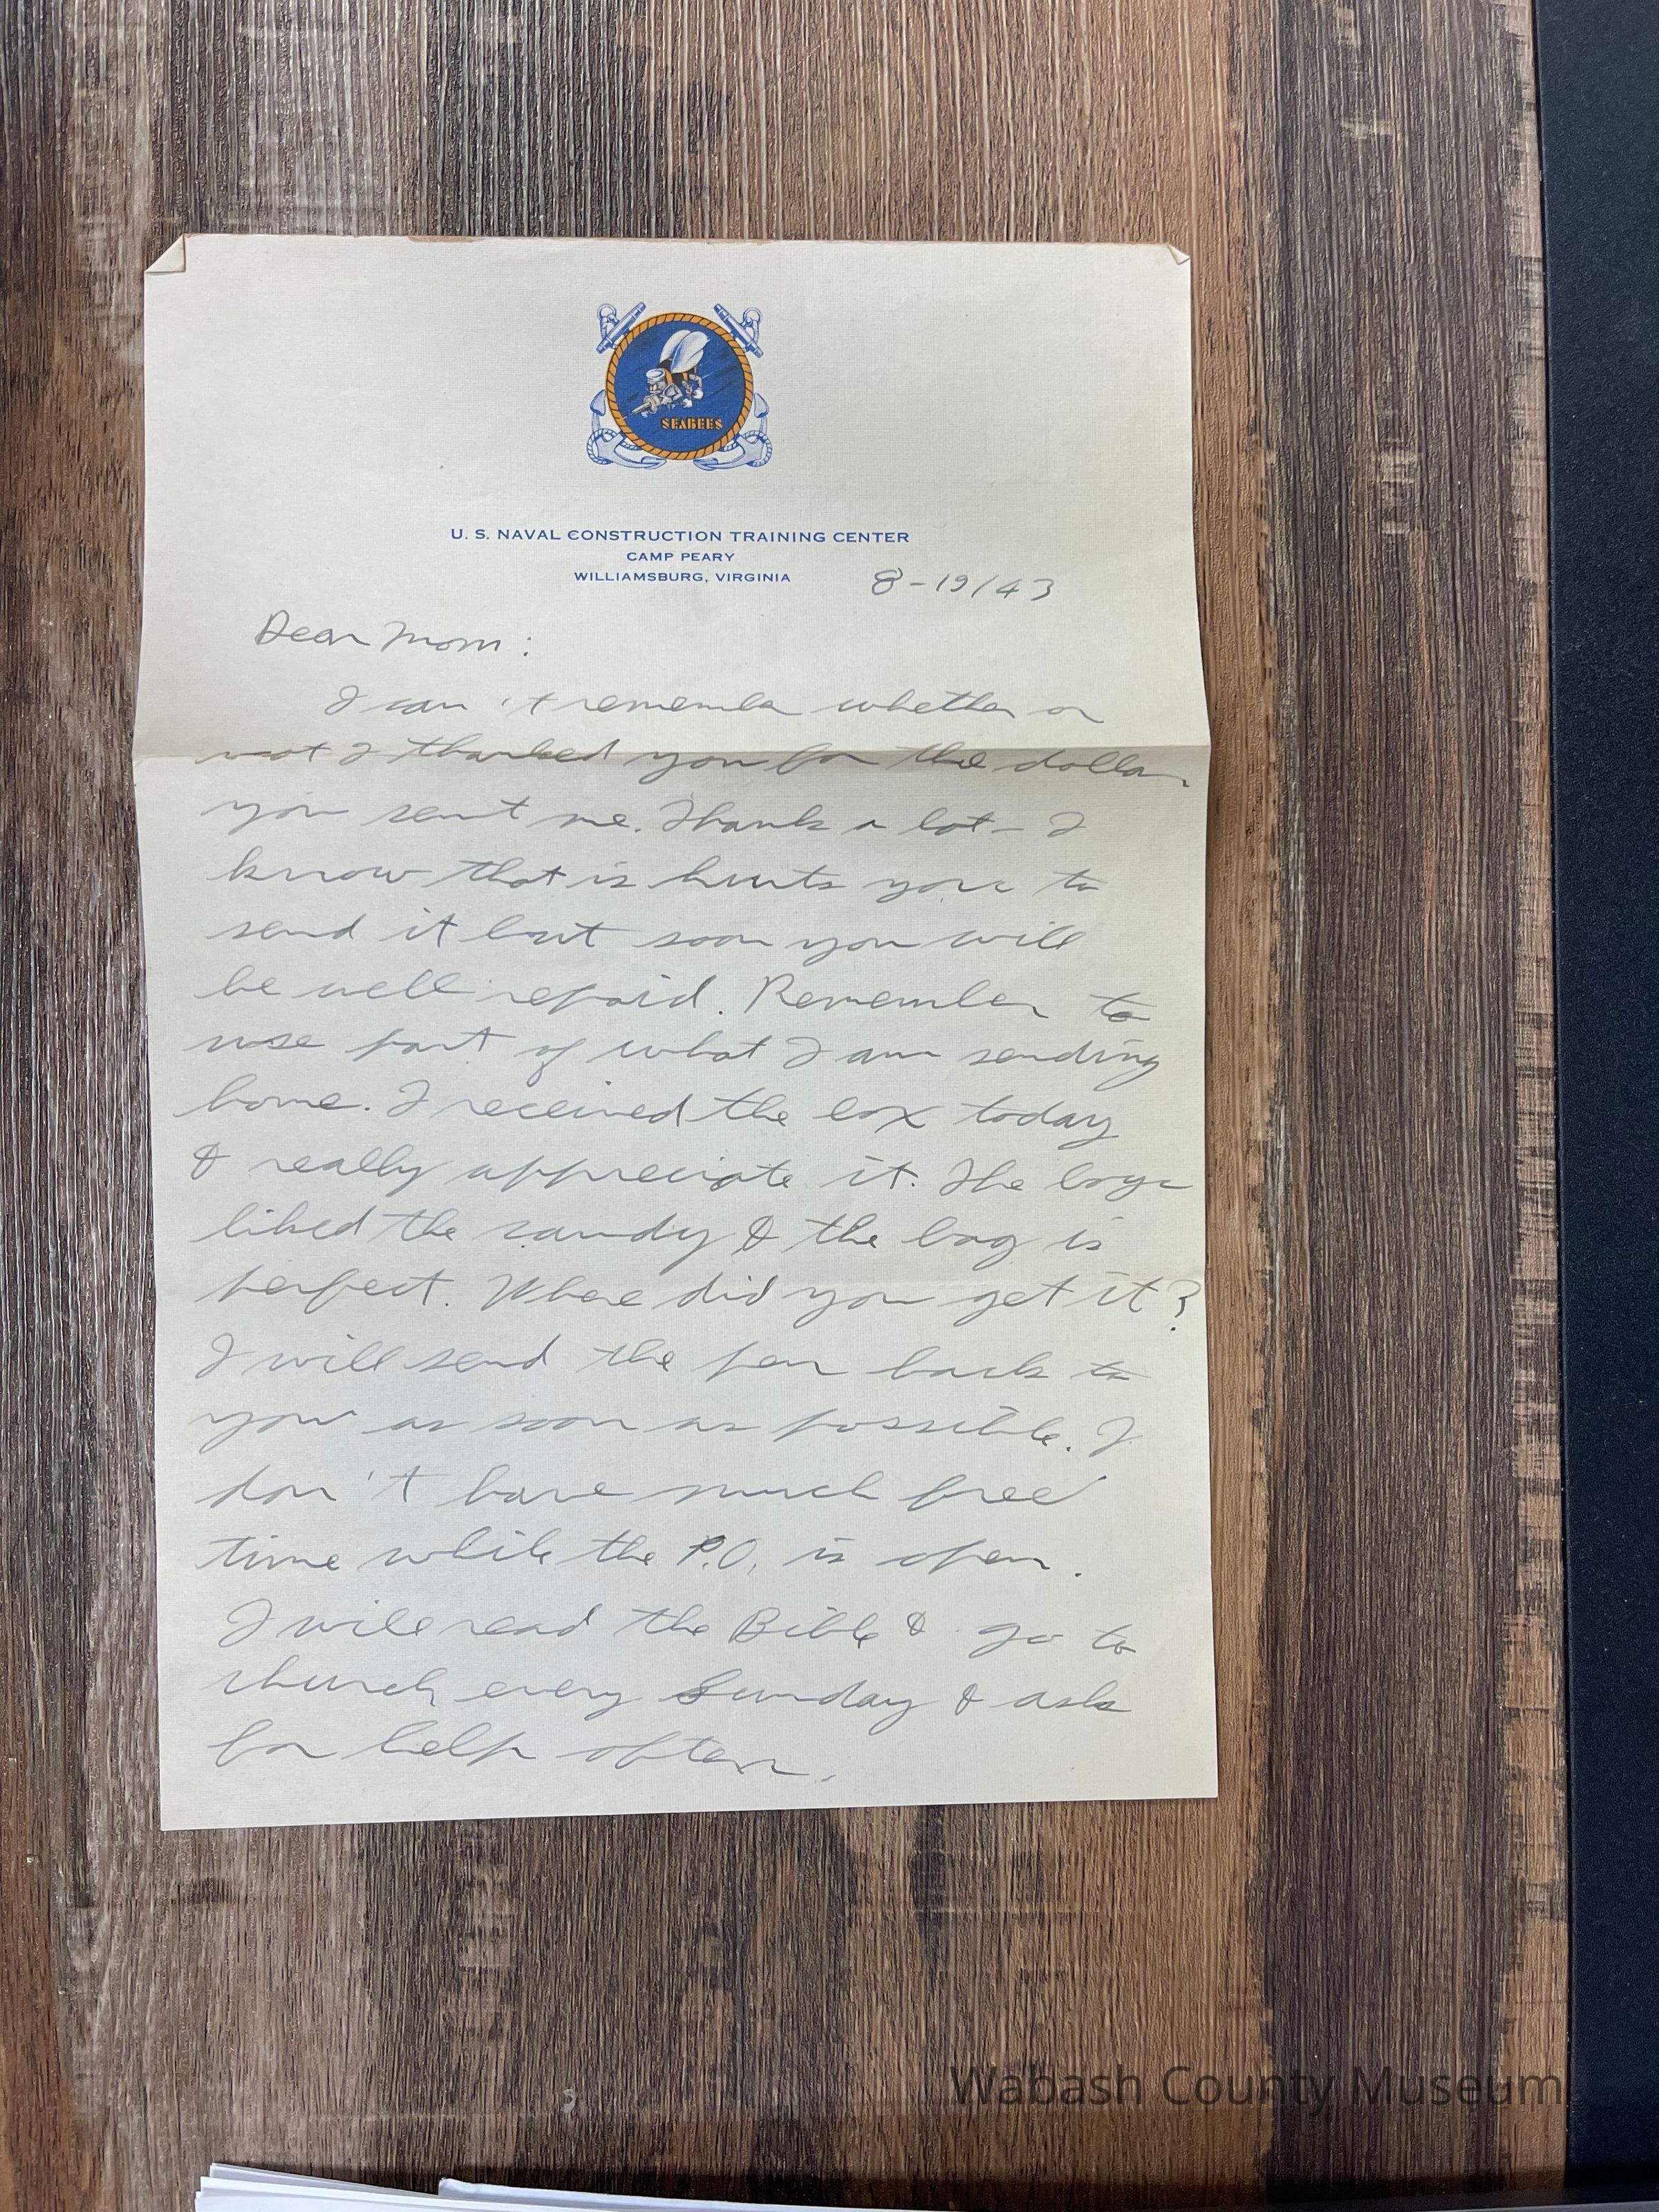 SEABEES
U. S. NAVAL CONSTRUCTION TRAINING CENTER
CAMP PEARY
WILLIAMSBURG, VIRGINIA
8-19/43
Dear Mom:
I can't remember whether or
not I thanked you for the dollar
you sent me. Thanks a lot - I
know that is hurts you to
send it but soon you will
be well repaid. Remember to
use part of what I am sending
home. I received the box today
& really appreciate it. The boys
liked the candy & the bag is
perfect. Where did you get it?
I will send the pen back to
you as soon as possible. I
don't have much free
time while the P.O. is open.
I will read the Bible & go to
church every Sunday & ask
for help often.
Wabash County Museum